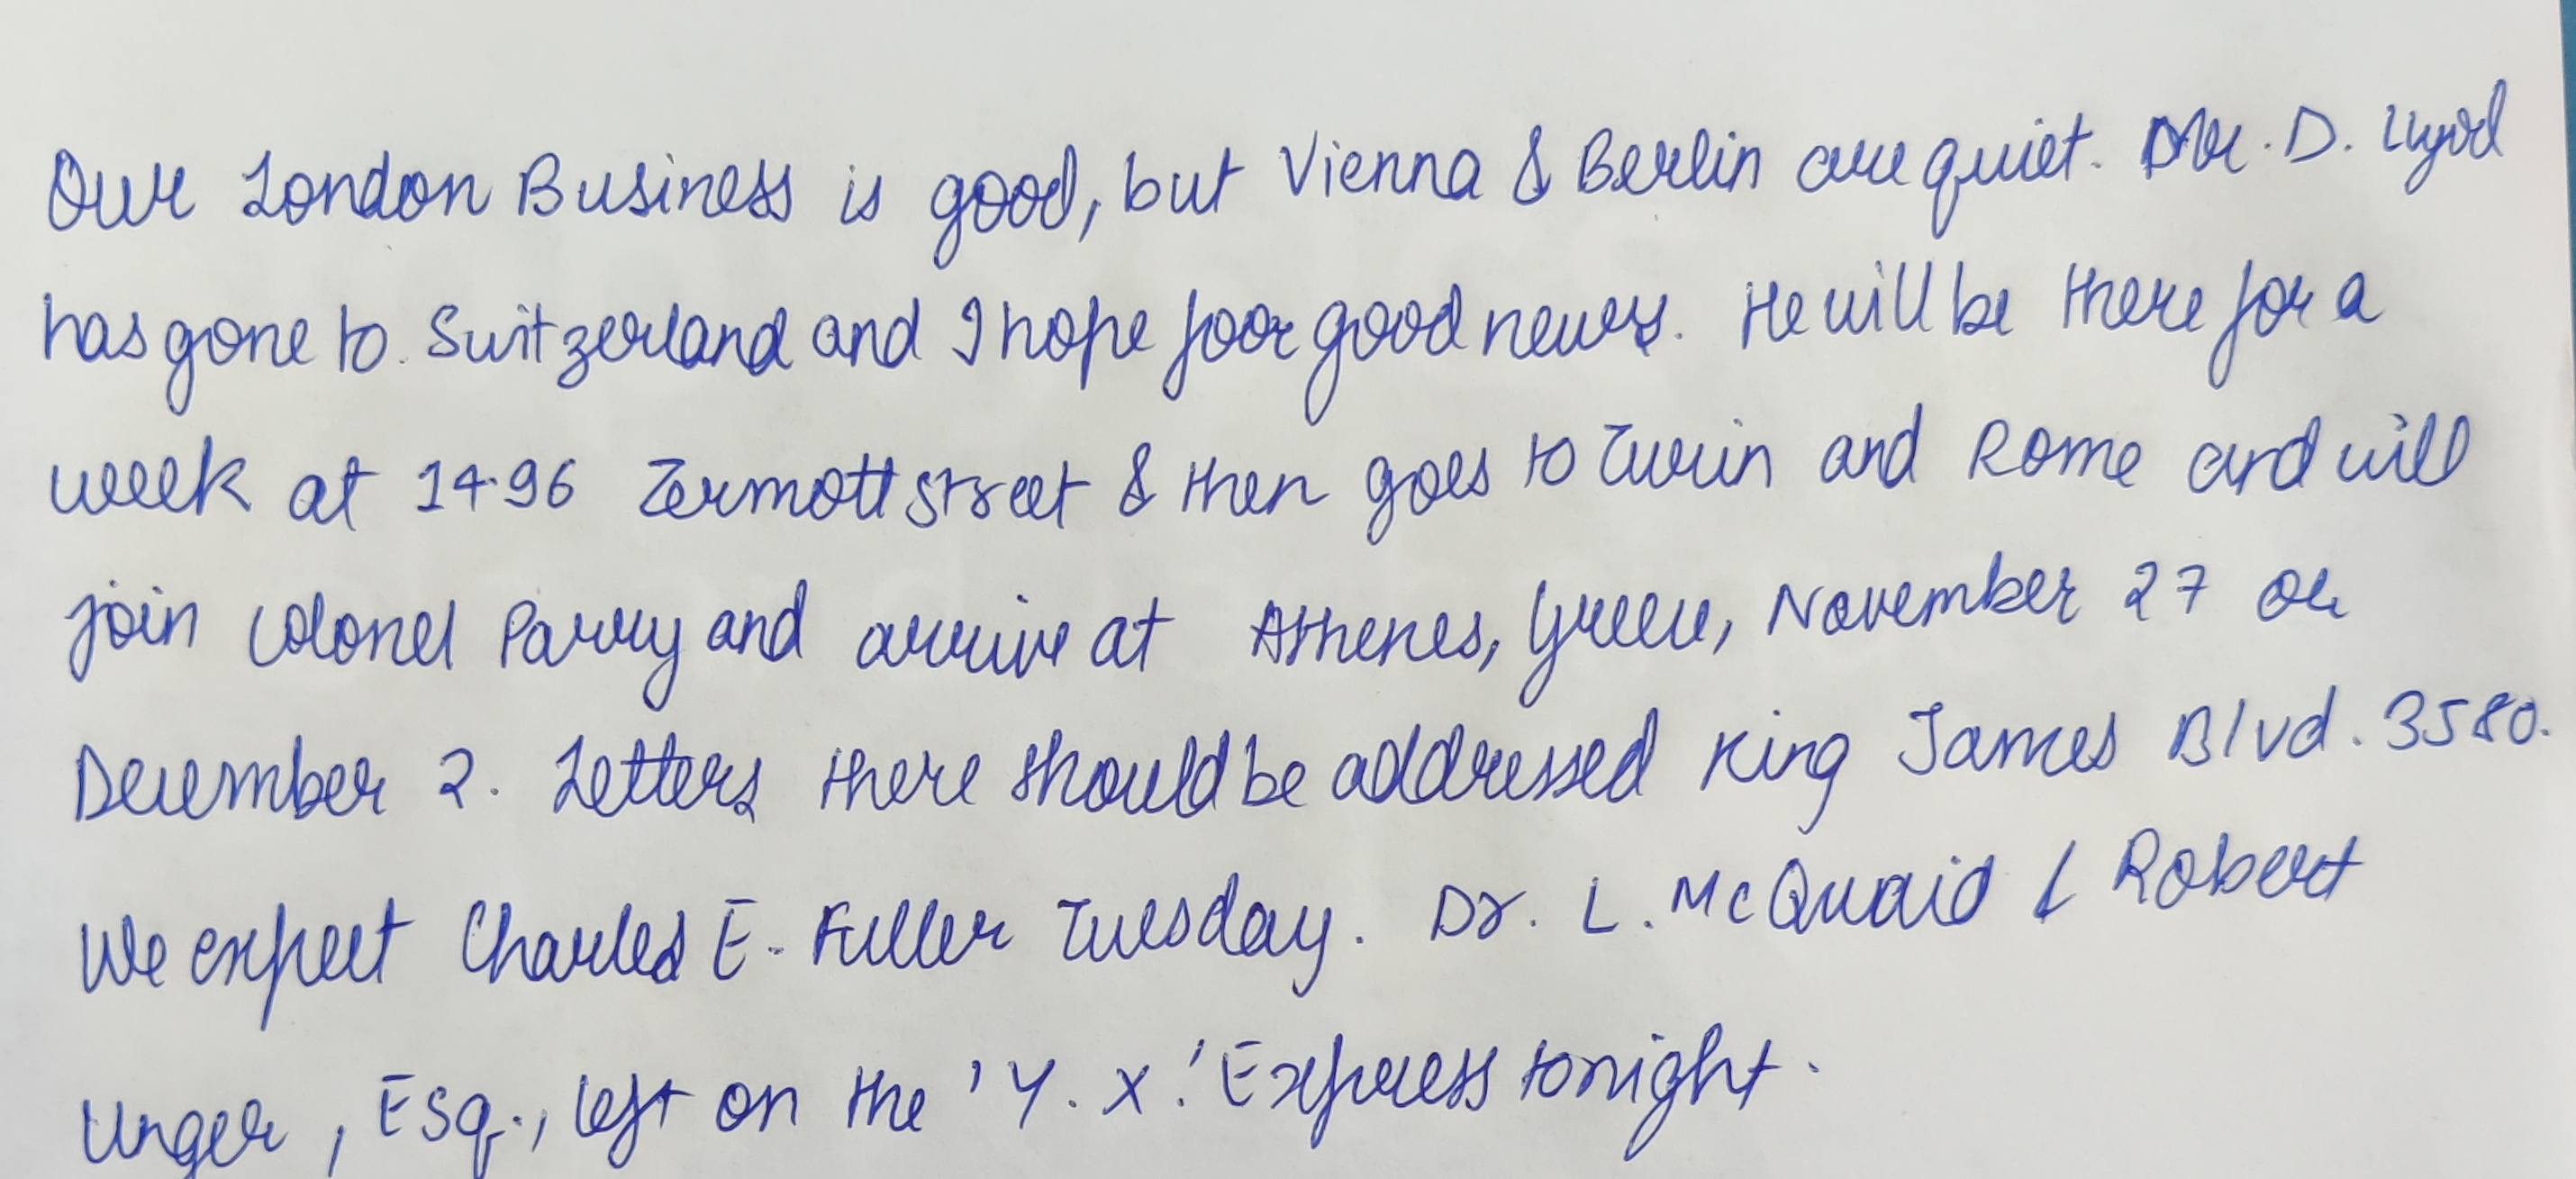 Our London Business is good, but Vienna & Berlin are quiet. Mr. D. Lyod
has gone to. Switzerland and I hope foor good news. He will be there for a
week at 14.96 Zermott street & then goes to Turin and Rome and will
join Colonel Parry and arrive at Athenes, Greece, November 27 or
December 2. Letters there should be addressed King James Blvd. 3580.
We expect Charles E. Fuller Tuesday. Dr. L. McQuaid & Robert
Unger, ESq., left on the 'Y. X.' Express tonight.